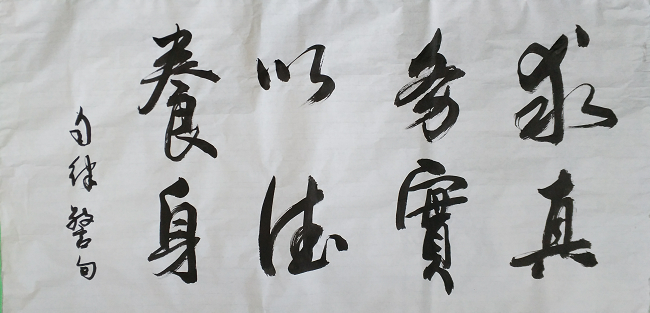 求真
务實
以德
養身
自律警句